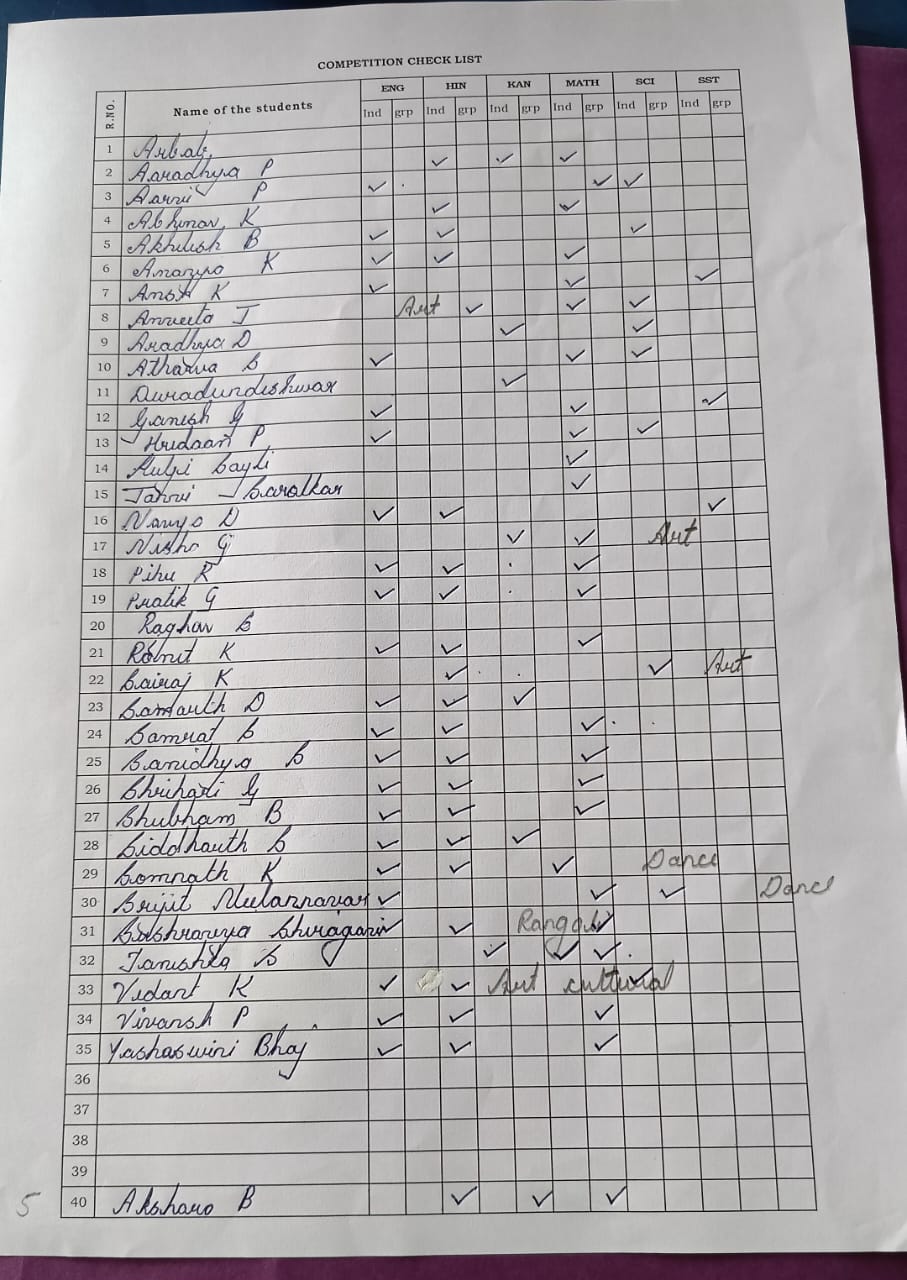 COMPETITION CHECK LIST
R.NO. Name of the students ENG HIN KAN MATH SCI SST
Ind grp Ind grp Ind grp Ind grp Ind grp Ind grp
1 Arbab ✓ ✓ ✓
2 Aaradhya P ✓ ✓ ✓
3 Aarvi P ✓ ✓
4 Abhinav K ✓ ✓ ✓
5 Akhilesh B ✓ ✓ ✓
6 K ✓ ✓ ✓
7 Ansh K Art ✓ ✓ ✓
8 Anveeta J ✓ ✓
9 Aradhya D ✓ ✓ ✓
10 Atharva S ✓
11 Duradundeshwar ✓ ✓ ✓
12 Ganesh G ✓ ✓ ✓
13 Hrudaan P ✓
14 ✓
15 Janvi Baralkar ✓
16 Navya D ✓ ✓
17 Nisha G ✓ ✓ Art
18 Pihu K ✓ ✓ ✓
19 Pratik G ✓ ✓ ✓
20 Raghav S
21 K ✓ ✓ ✓
22 Sairaj K ✓ ✓ Art
23 Samarth D ✓ ✓ ✓
24 Samrat S ✓ ✓ ✓
25 Sanidhya S ✓ ✓ ✓
26 Shrihari G ✓ ✓ ✓
27 Shubham B ✓ ✓ ✓
28 Siddharth S ✓ ✓ ✓
29 Somnath K ✓ ✓ ✓ Dance
30 Srijit Mulannavar ✓ ✓ ✓ Dance
31 Shiragavi ✓ ✓ Rangoli ✓
32 Tanishka S ✓ ✓ ✓
33 Vedant K ✓ ✓ Art cultural
34 Vivansh P ✓ ✓ ✓
35 Yashaswini Bhoj ✓ ✓ ✓
36
37
38
39
5 40 Akshara B ✓ ✓ ✓